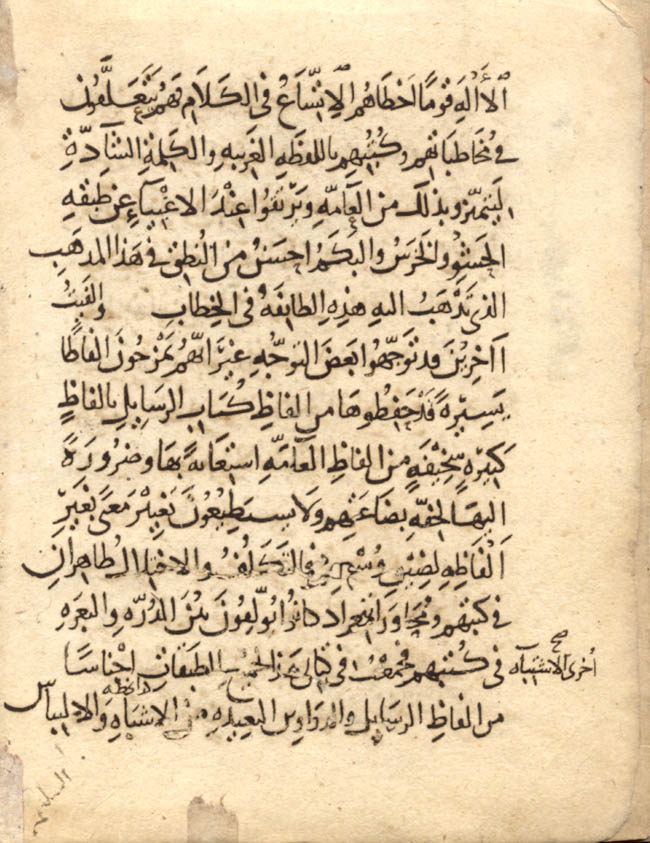 الآلة قوما اخطاهم الاتساع فى الكلام فهم يتعلقون
فى مخاطباتهم وكتبهم باللفظه الغريبه والكلمة الشاذة
ليتميزو بذلك من العامه ويرتفعوا عند الاغبياء عن طبقه
الحشو والخرس والبكم احسن من النطق فى هذا المذهب
الذى تذهب اليه هذه الطايفه فى الخطاب والفيت
اخرين قد توجهوا بعض التوجه غير انهم يمزجون الفاظا
يسيرة قد حفظوها من الفاظ كتاب الرسايل بالفاظ
كثيره سخيفه من الفاظ العامه استعانة بها وضرورة
اليها لخفه بضاعتهم ولا يستطيعون تغيير معنى بغير
الفاظه لضيق وسعهم فالتكلف والاختلال ظاهران
فى كتبهم ومحاوراتهم اذ كانوا يولفون بين الدره والبعره
فى كتبهم فجمعت فى كتابى هذا لجميع الطبقات اجناسا
من الفاظ الرسايل والدواوين البعيده من الاشباه والالتباس
صح
اخرى الاشتباه